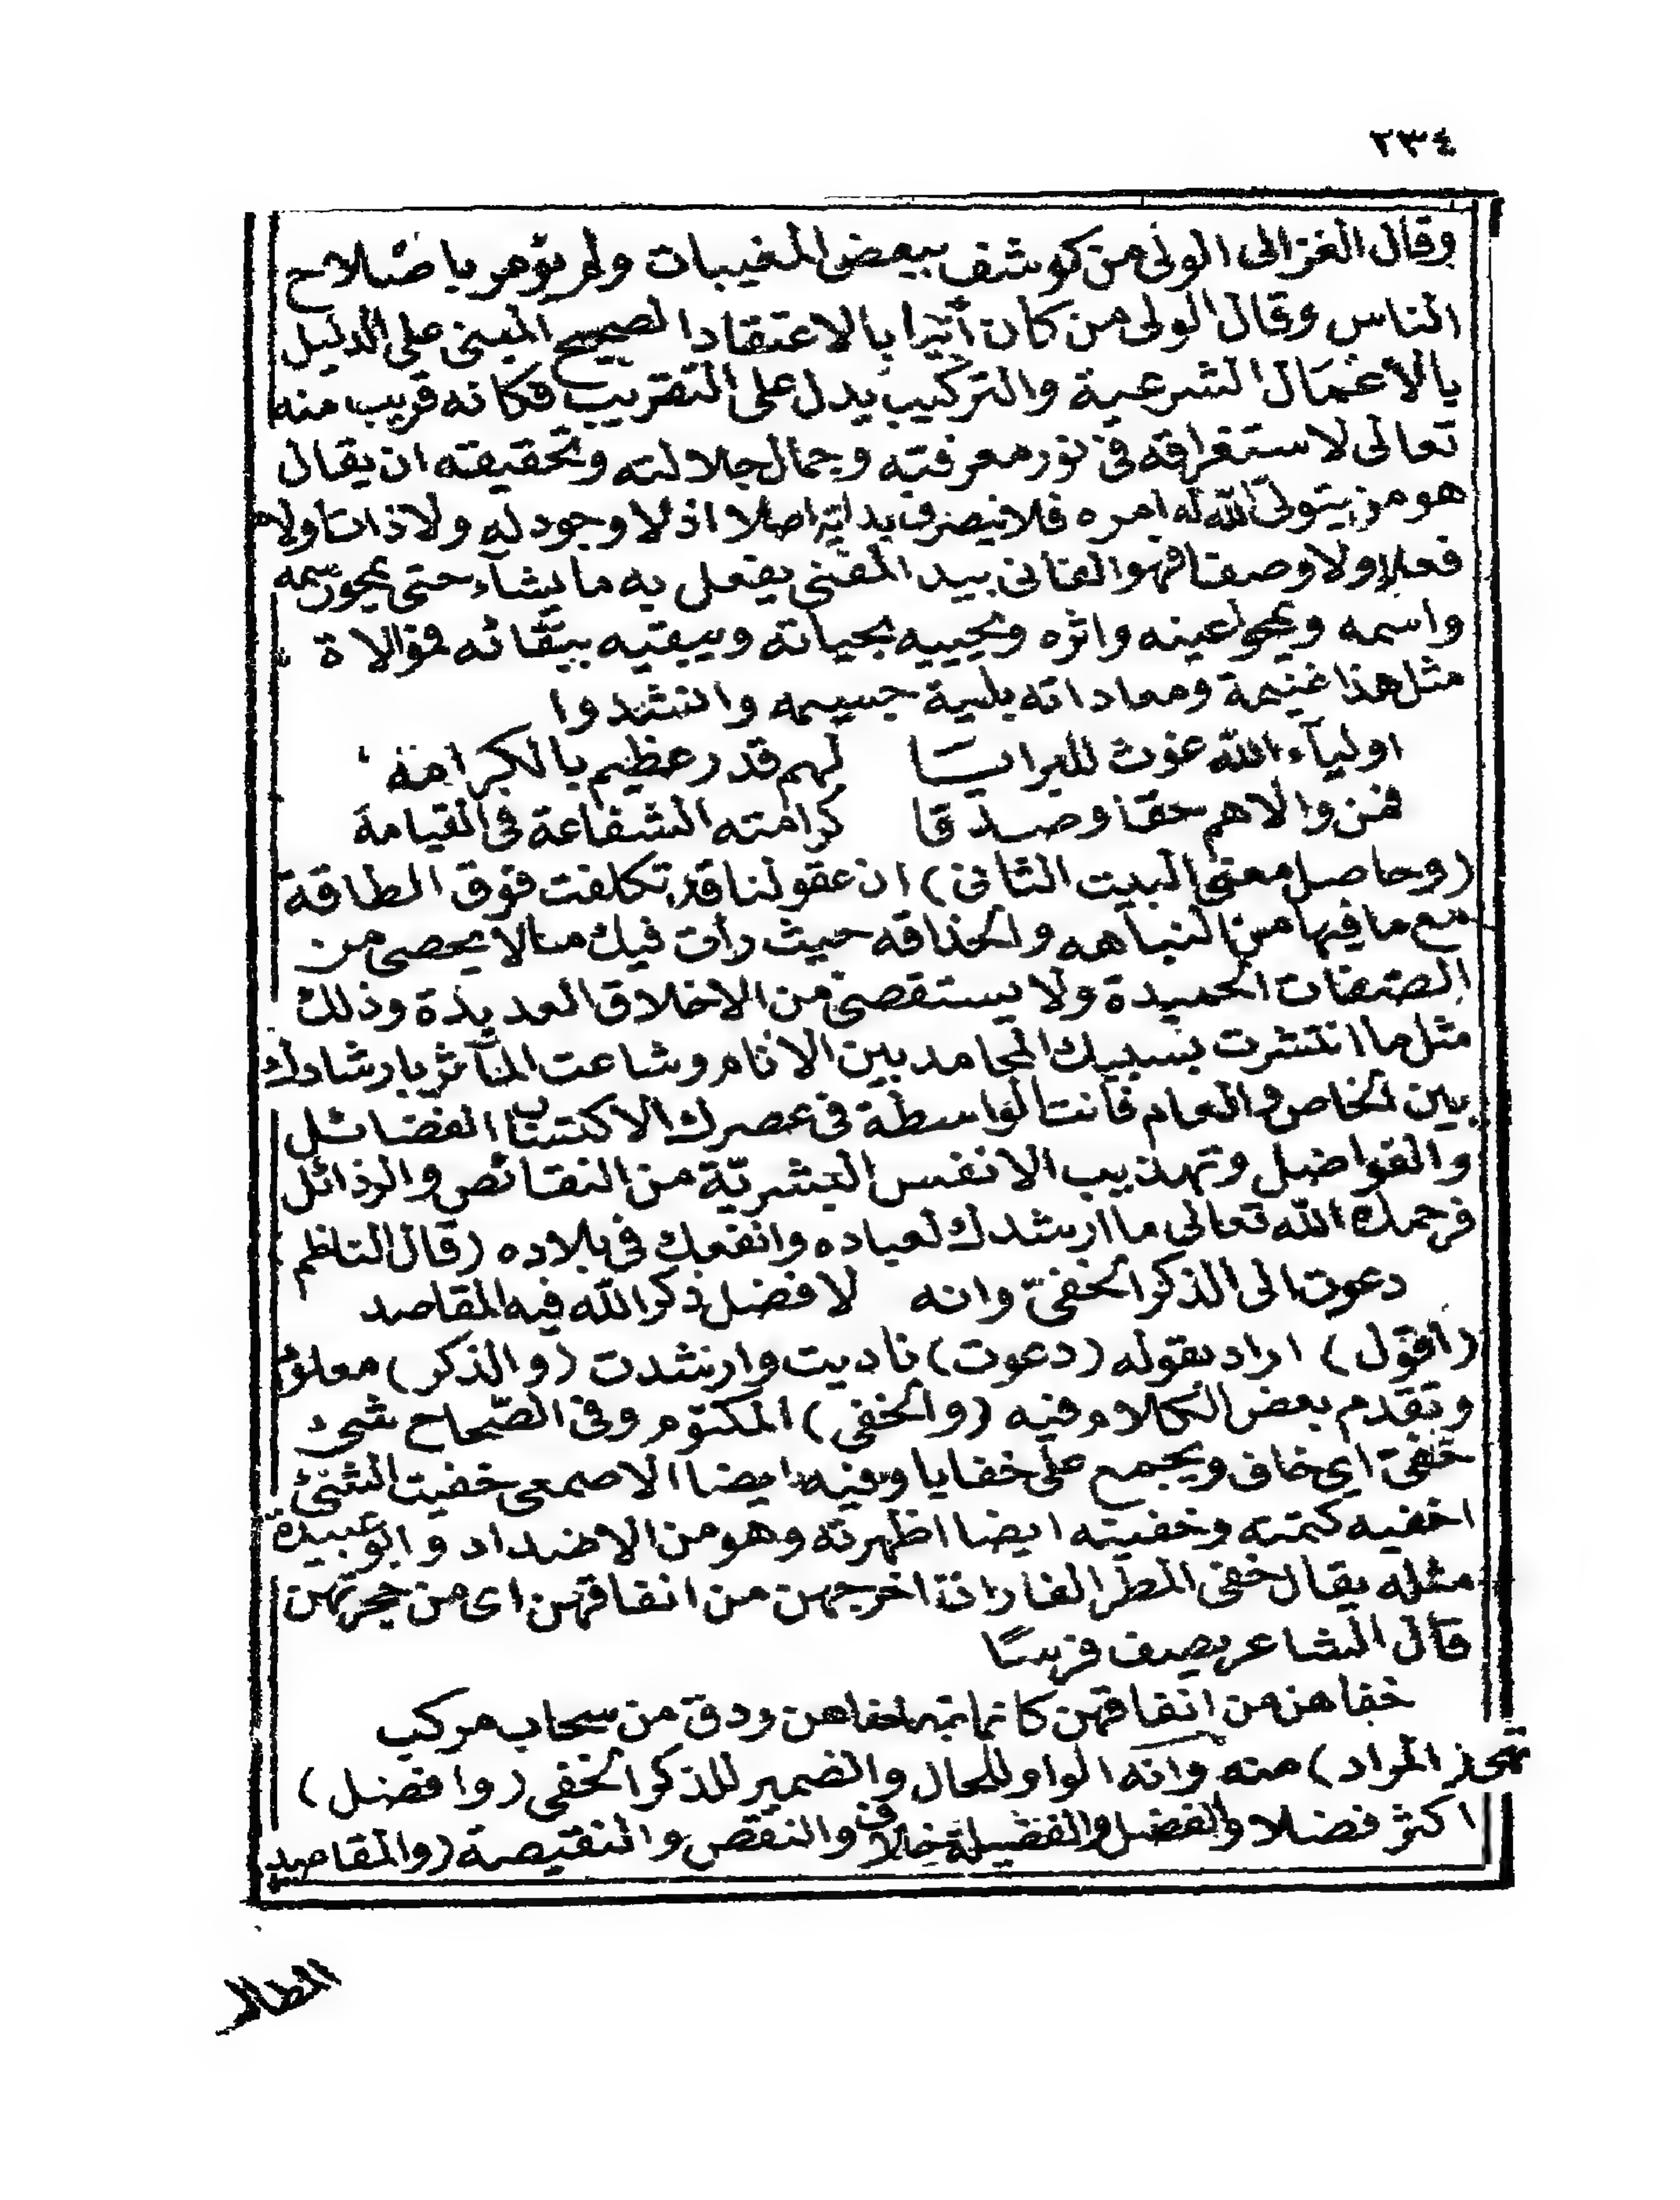 ٢٣٤
وقال الغزالى الولى من كوشف ببعض المغيبات ولم يؤمر باصلاح
الناس وقال الولى من كان آتيا بالاعتقاد الصحيح المبنى على الدليل
بالاعمال الشرعية والتركيب يدل على التقريب فكانه قريب منه
تعالى لاستغراقه فى نور معرفته وجمال جلالته وتحقيقه ان يقال
هو من يتولى الله له امره فلا تصرف بداته اصلا اذ لا وجود له ولا ذات ولا
فعل ولا وصف فهو الفانى بيد المفنى يفعل به ما يشآء حتى يمحو رسمه
واسمه ويمحو عينه واثره ويحييه بحياته ويبقيه ببقائه فموالاة
مثل هذا غنيمة ومعاداته بلية جسيمه وانشدوا
اوليآء الله غوث للبرايا لهم قدر عظيم بالكرامة
فمن والاهم حقا وصدقا كرامته الشفاعة فى القيامة
(وحاصل معنى البيت الثانى) ان عقولنا قد تكلفت فوق الطاقة
مع ما فيها من النباهه والحذاقه حيث رأت فيك ما لا يحصى من
الصفات الحميدة ولا يستقصى من الاخلاق العديدة وذلك
مثل ما انتشرت بسببك المحامد بين الانام وشاعت المآثر بارشادك
بين الخاص والعام فأنت الواسطة فى عصرك الاكتساب الفضائل
والفواضل وتهذيب الانفس البشرية من النقائص والرذائل
فرحمك الله تعالى ما ارشدك لعباده وانفعك فى بلاده (قال الناظم)
دعوت الى الذكر الخفىّ وانه لافضل ذكر الله فيه المقاصد
(اقول) اراد بقوله (دعوت) ناديت وارشدت (والذكر) معلوم
وتقدم بعض الكلام فيه (والخفى) المكتوم وفى الصّحاح شىء
خفىّ اى خاف ويجمع على خفايا وفيه ايضا الاصمعى خفيت الشئ
اخفيه كتمته وخفيته ايضا اظهرته وهو من الاضداد وابو عبيدة
مثله يقال خفى المطر الفار اذا اخرجهن من انفاقهن اى من جحرتهن
قال الشاعر يصف فرسًا
خفاهن من انفاقهن كانما خفاهن ودق من سحاب مركب
المراد) منه وانه الواو للحال والضمير للذكر الخفى (وافضل)
اكثر فضلا والفضل والفضيلة خلاف والنقص والنقيصة (والمقاصد
المطالب